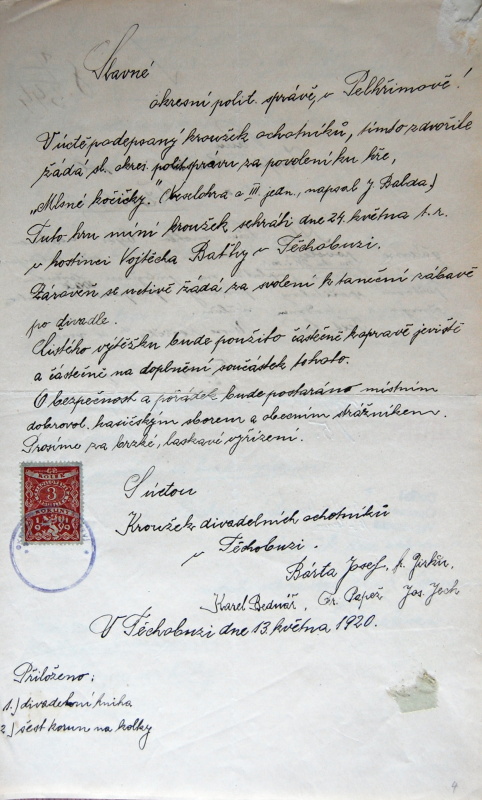 Slavné
okresní polit. správě, v Pelhřimově!
V úctě podepsaný kroužek ochotníků, tímto zdvořile
žádá sl. okres. polit. správu za povolení ku hře,
„Mlsné kočičky." (Veselohra o III. jedn., napsal J. Balda.)
Tuto hru míní kroužek sehráti dne 24. května t. r.
v hostinci Vojtěcha Baťhy v Těchobuzi.
Zároveň se uctivě žádá za svolení k taneční zábavě
po divadle.
Čistého výtěžku bude použito částečně ku opravě jeviště
a částečně na doplnění součástek tohoto.
O bezpečnost a pořádek bude postaráno místním
dobrovol. hasičským sborem a obecním strážníkem.
Prosíme za brzké, laskavé vyřízení.
S úctou
Kroužek divadelních ochotníků
v Těchobuzi.
Bárta Josef,
Karel Bednář, Fr. Papež Jos. Jech
V Těchobuzi dne 13. května 1920.
KOLEK
3
KORUNY
Přiloženo:
1.) divadelní kniha
2.) šest korun na kolky
4